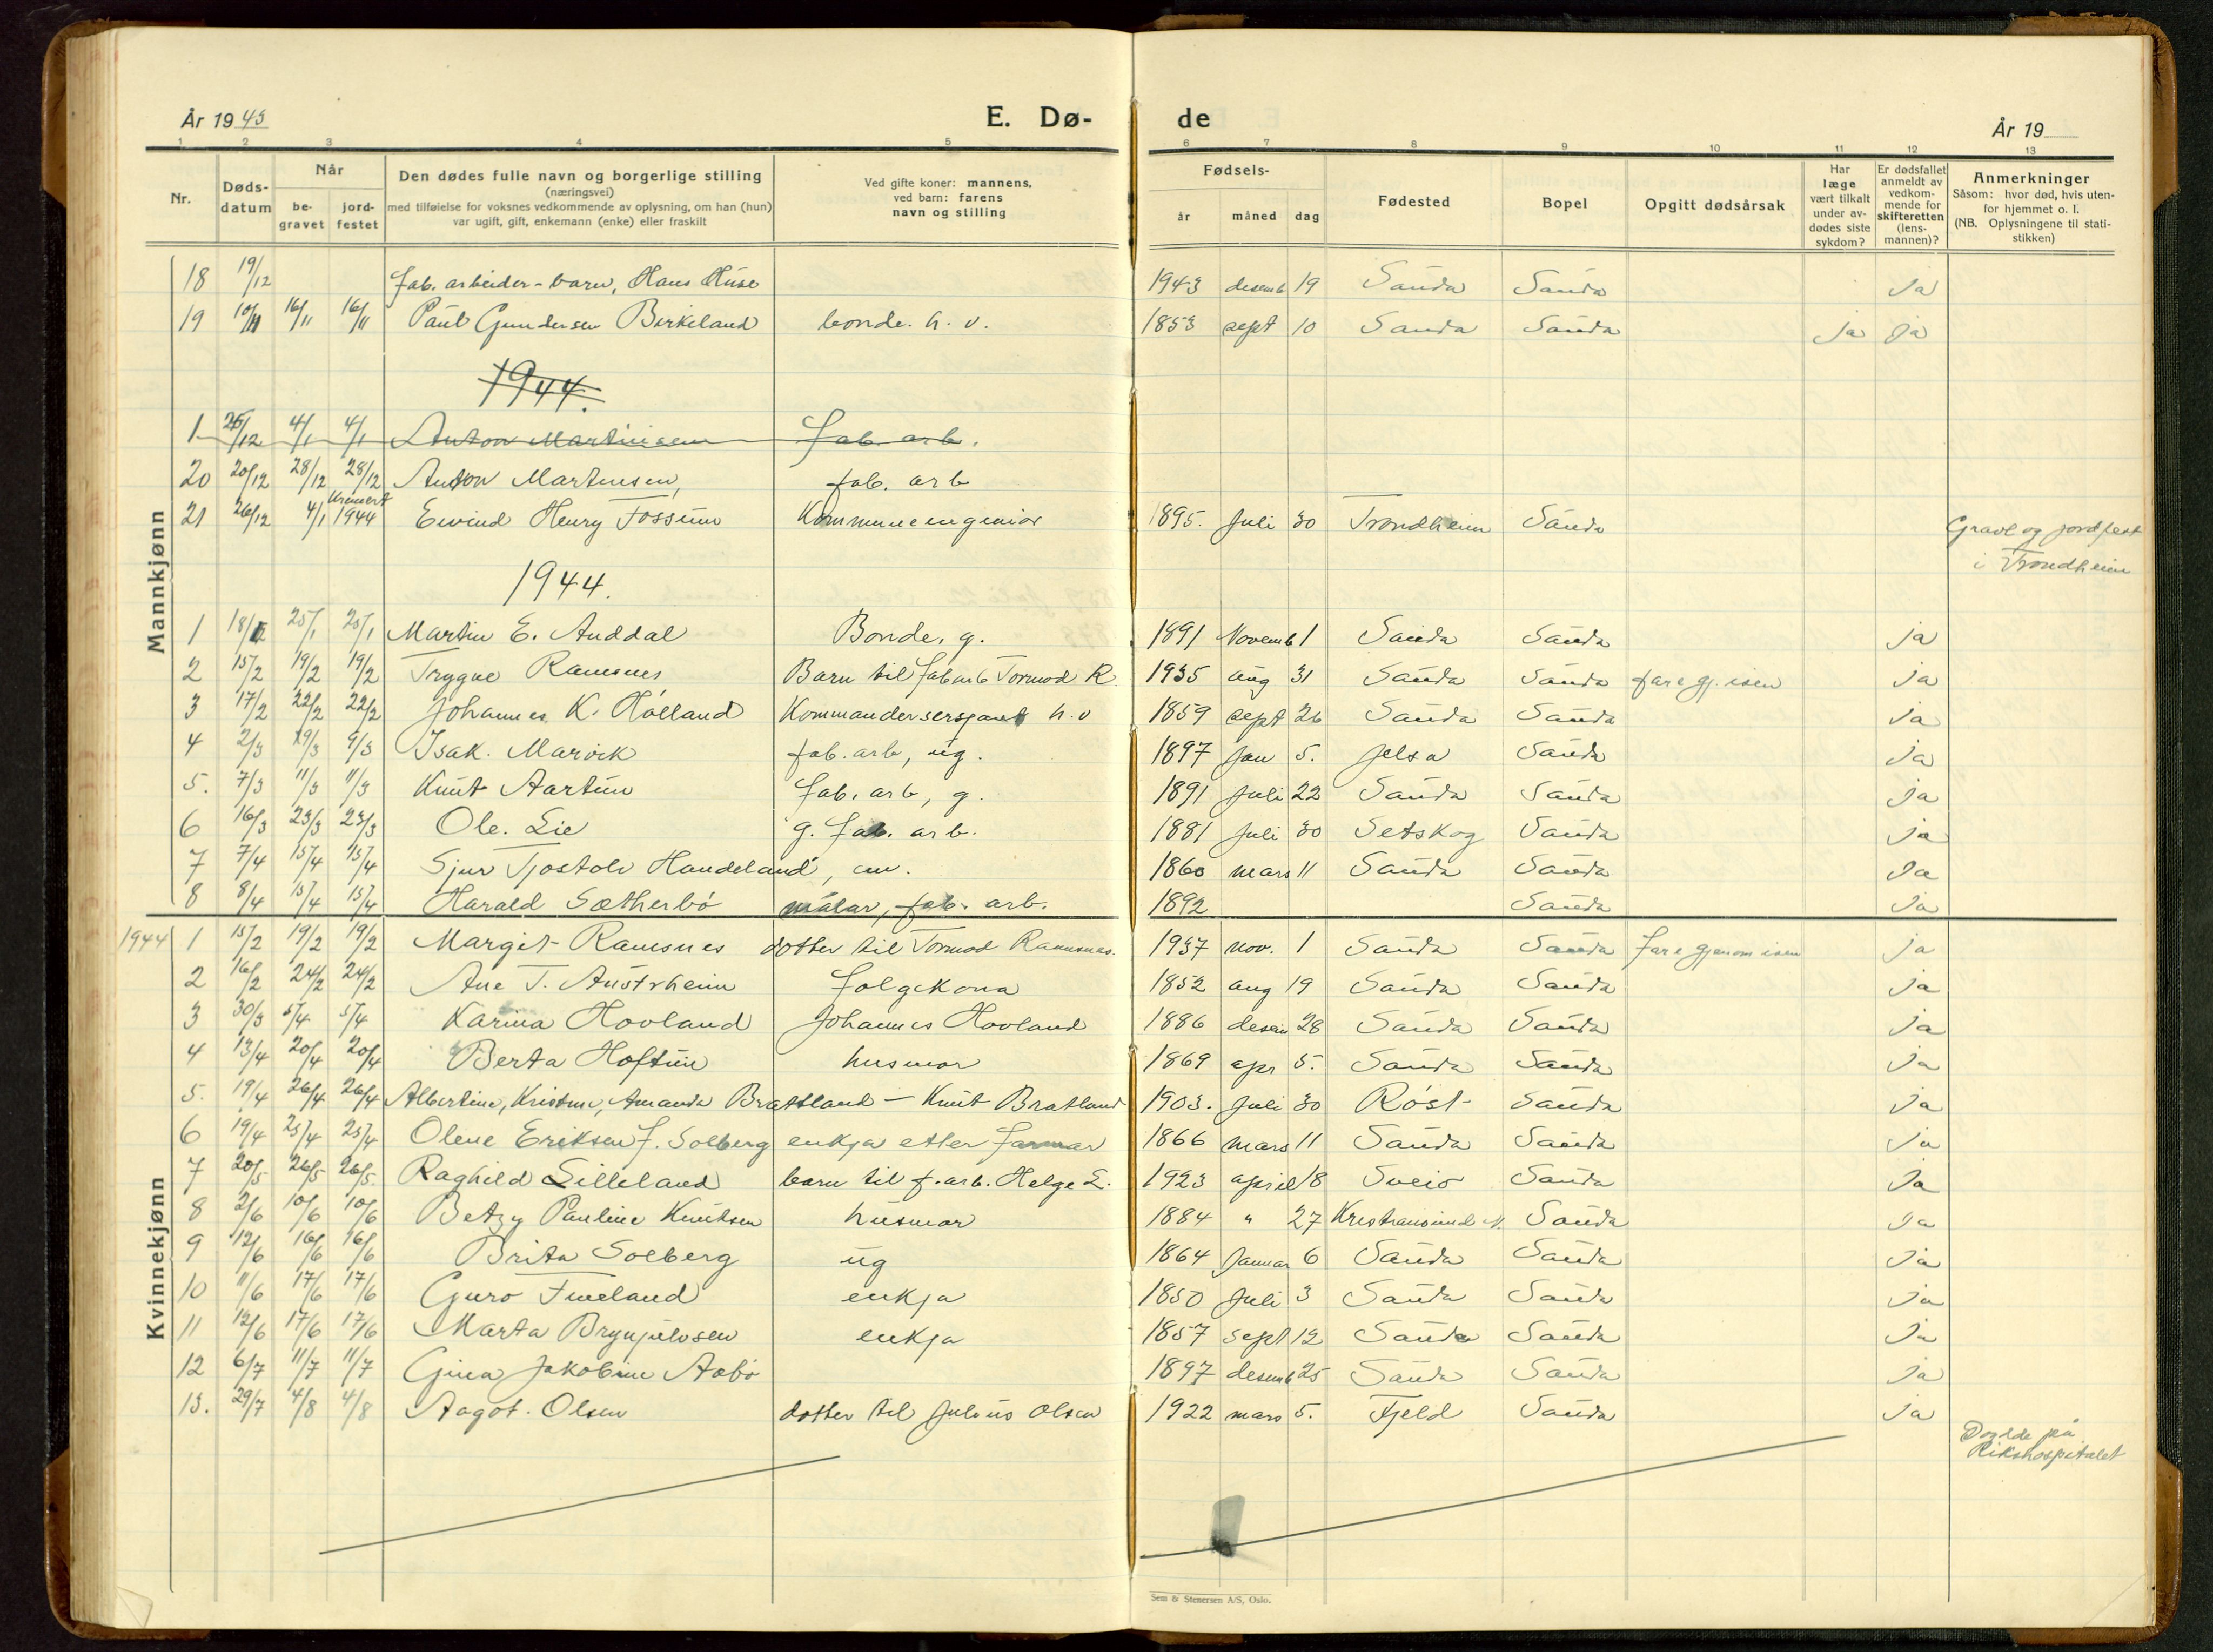 År 1943
E. Dø-
de
År 19
1 2 3 4 5 6 7 8 9 10 11 12 13
Nr.
Døds-datum
Når
be-gravet
jord-festet
Den dødes fulle navn og borgerlige stilling
(næringsvei)
med tilføielse for voksnes vedkommende av oplysning, om han (hun)
var ugift, gift, enkemann (enke) eller fraskilt
Ved gifte koner: mannens,
ved barn: farens
navn og stilling
Fødsels-
år måned dag
Fødested
Bopel
Opgitt dødsårsak
Har læge vært tilkalt under av-dødes siste sykdom?
Er dødsfallet anmeldt av vedkom-mende for skifteretten (lens-mannen)?
Anmerkninger
Såsom: hvor død, hvis uten-
for hjemmet o. l.
(NB. Oplysningene til stati-
stikken)
Mannkjønn
18 19/12 fab. arbeider-barn, Hans Huse 1943 desemb 19 Sauda Sauda Ja
19 10/11 16/11 16/11 Paul Gundersen Birkeland bonde. h. v. 1853 sept 10 Sauda Sauda Ja Ja
1944.
1 25/12 4/1 4/1 Anton Martinsen fab. arb.
20 20/12 28/12 28/12 Anton Martinsen, fab. arb
21 26/12 4/1 Kremert 1944 Eivind Henry Fossum Kommuneingeniør 1895. Juli 30 Trondheim Sauda Gravl og jordfest
i Trondheim
1944.
1 18/1 25/1 25/1 Martin E. Anddal Bonde, g. 1891 Novemb 1 Sauda Sauda ja
2 15/2 19/2 19/2 Trygve Ramsnes Barn til fabarb Tormod R. 1935 aug 31 Sauda Sauda fare gj. isen Ja
3 17/2 22/2 22/2 Johannes K. Hølland Kommandersersjant h. v 1859 sept 26 Sauda Sauda Ja
4 2/3 9/3 9/3 Isak. Marvik fab. arb, ug. 1897 Jan 5. Jelsa Sauda Ja
5. 7/3 11/3 11/3 Knut Aartun fab. arb, g. 1891 Juli 22 Sauda Sauda Ja
6 16/3 23/3 23/3 Ole. Lie g. fab. arb. 1881 Juli 30 Setskog Sauda Ja
7 7/4 15/4 15/4 Sjur Tjostolv Handeland, em. 1860 mars 11 Sauda Sauda Ja
8 8/4 15/4 15/4 Harald Sætherbø målar, fab. arb. 1892 Sauda Ja
Kvinnekjønn
1944 1 15/2 19/2 19/2 Margit Ramsnes dotter til Tormod Ramsnes. 1937 nov. 1 Sauda Sauda fare gjenom isen ja
2 16/2 24/2 24/2 Ane T. Austrheim følgekona 1852 aug 19 Sauda Sauda ja
3 30/3 5/4 5/4 Karina Hovland Johannes Hovland 1886 desem 28 Sauda Sauda Ja
4 13/4 20/4 20/4 Berta Hoftun husmor 1869 apr 5. Sauda Sauda Ja
5. 19/4 26/4 26/4 Albertine, Kristine, Amanda Brattland - Knut Bratland 1903. Juli 30 Røst Sauda Ja
6 19/4 25/4 25/4 Olene Eriksen f. Solberg enkja etter farmar 1866 mars 11 Sauda Sauda Ja
7 20/5 26/5 26/5. Raghild Lilleland barn til f. arb. Helge L. 1923 april 18 Sveio Sauda Ja
8 2/6 10/6 10/6 Betzy Pauline Knutsen husmor 1884 " 27 Kristiansund N. Sauda Ja
9 12/6 16/6 16/6 Brita Solberg ug 1864 Januar 6 Sauda Sauda Ja
10 11/6 17/6 17/6 Guro Fiveland enkja 1850 Juli 3 Sauda Sauda Ja
11 12/6 17/6 17/6 Marta Brynjulvsen enkja 1857 sept 12 Sauda Sauda Ja
12 6/7 11/7 11/7 Gina Jakobine Aabø 1897 desemb 25 Sauda Sauda Ja
13. 29/7 4/8 4/8 Aagot. Olsen dotter til Julius Olsen 1922 mars 5. Fjeld Sauda Ja
Døydde på
Rikshospitalet
Sem & Stenersen A/S, Oslo.